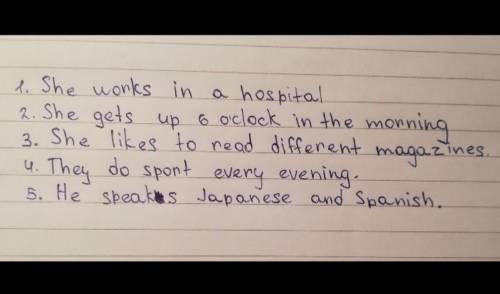 1. She works in a hospital
2. She gets up 6 o'clock in the morning
3. She likes to read different magazines.
4. They do sport every evening.
5. He speaks Japanese and Spanish.